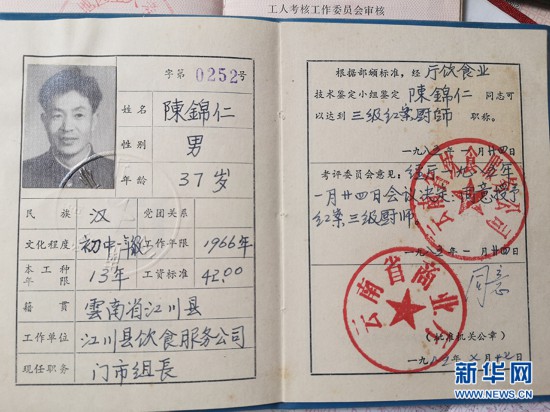 工人考核工作委员会审核
字第0252号
姓名 陳錦仁
性别 男
年龄 37岁
民族 汉 党团关系
文化程度 初中 工作年限 1966年
本工种年限 13年 工资标准 42.00
籍贯 雲南省江川县
工作单位 江川县饮食服务公司
现任职务 门市组長
根据部颁标准，经 厅饮食业
技术鉴定小组鉴定 陳錦仁 同志可
以达到 三级红案厨师 职称。
一九八三年 一月廿四日
考评委员会意见：经厅一九八三年
一月廿四日会议决定：同意授予
红案三级厨师
一九八三年 一月廿四日
同意
云南省商业厅
（批准机关公章）
新华网
WWW.NEWS.CN